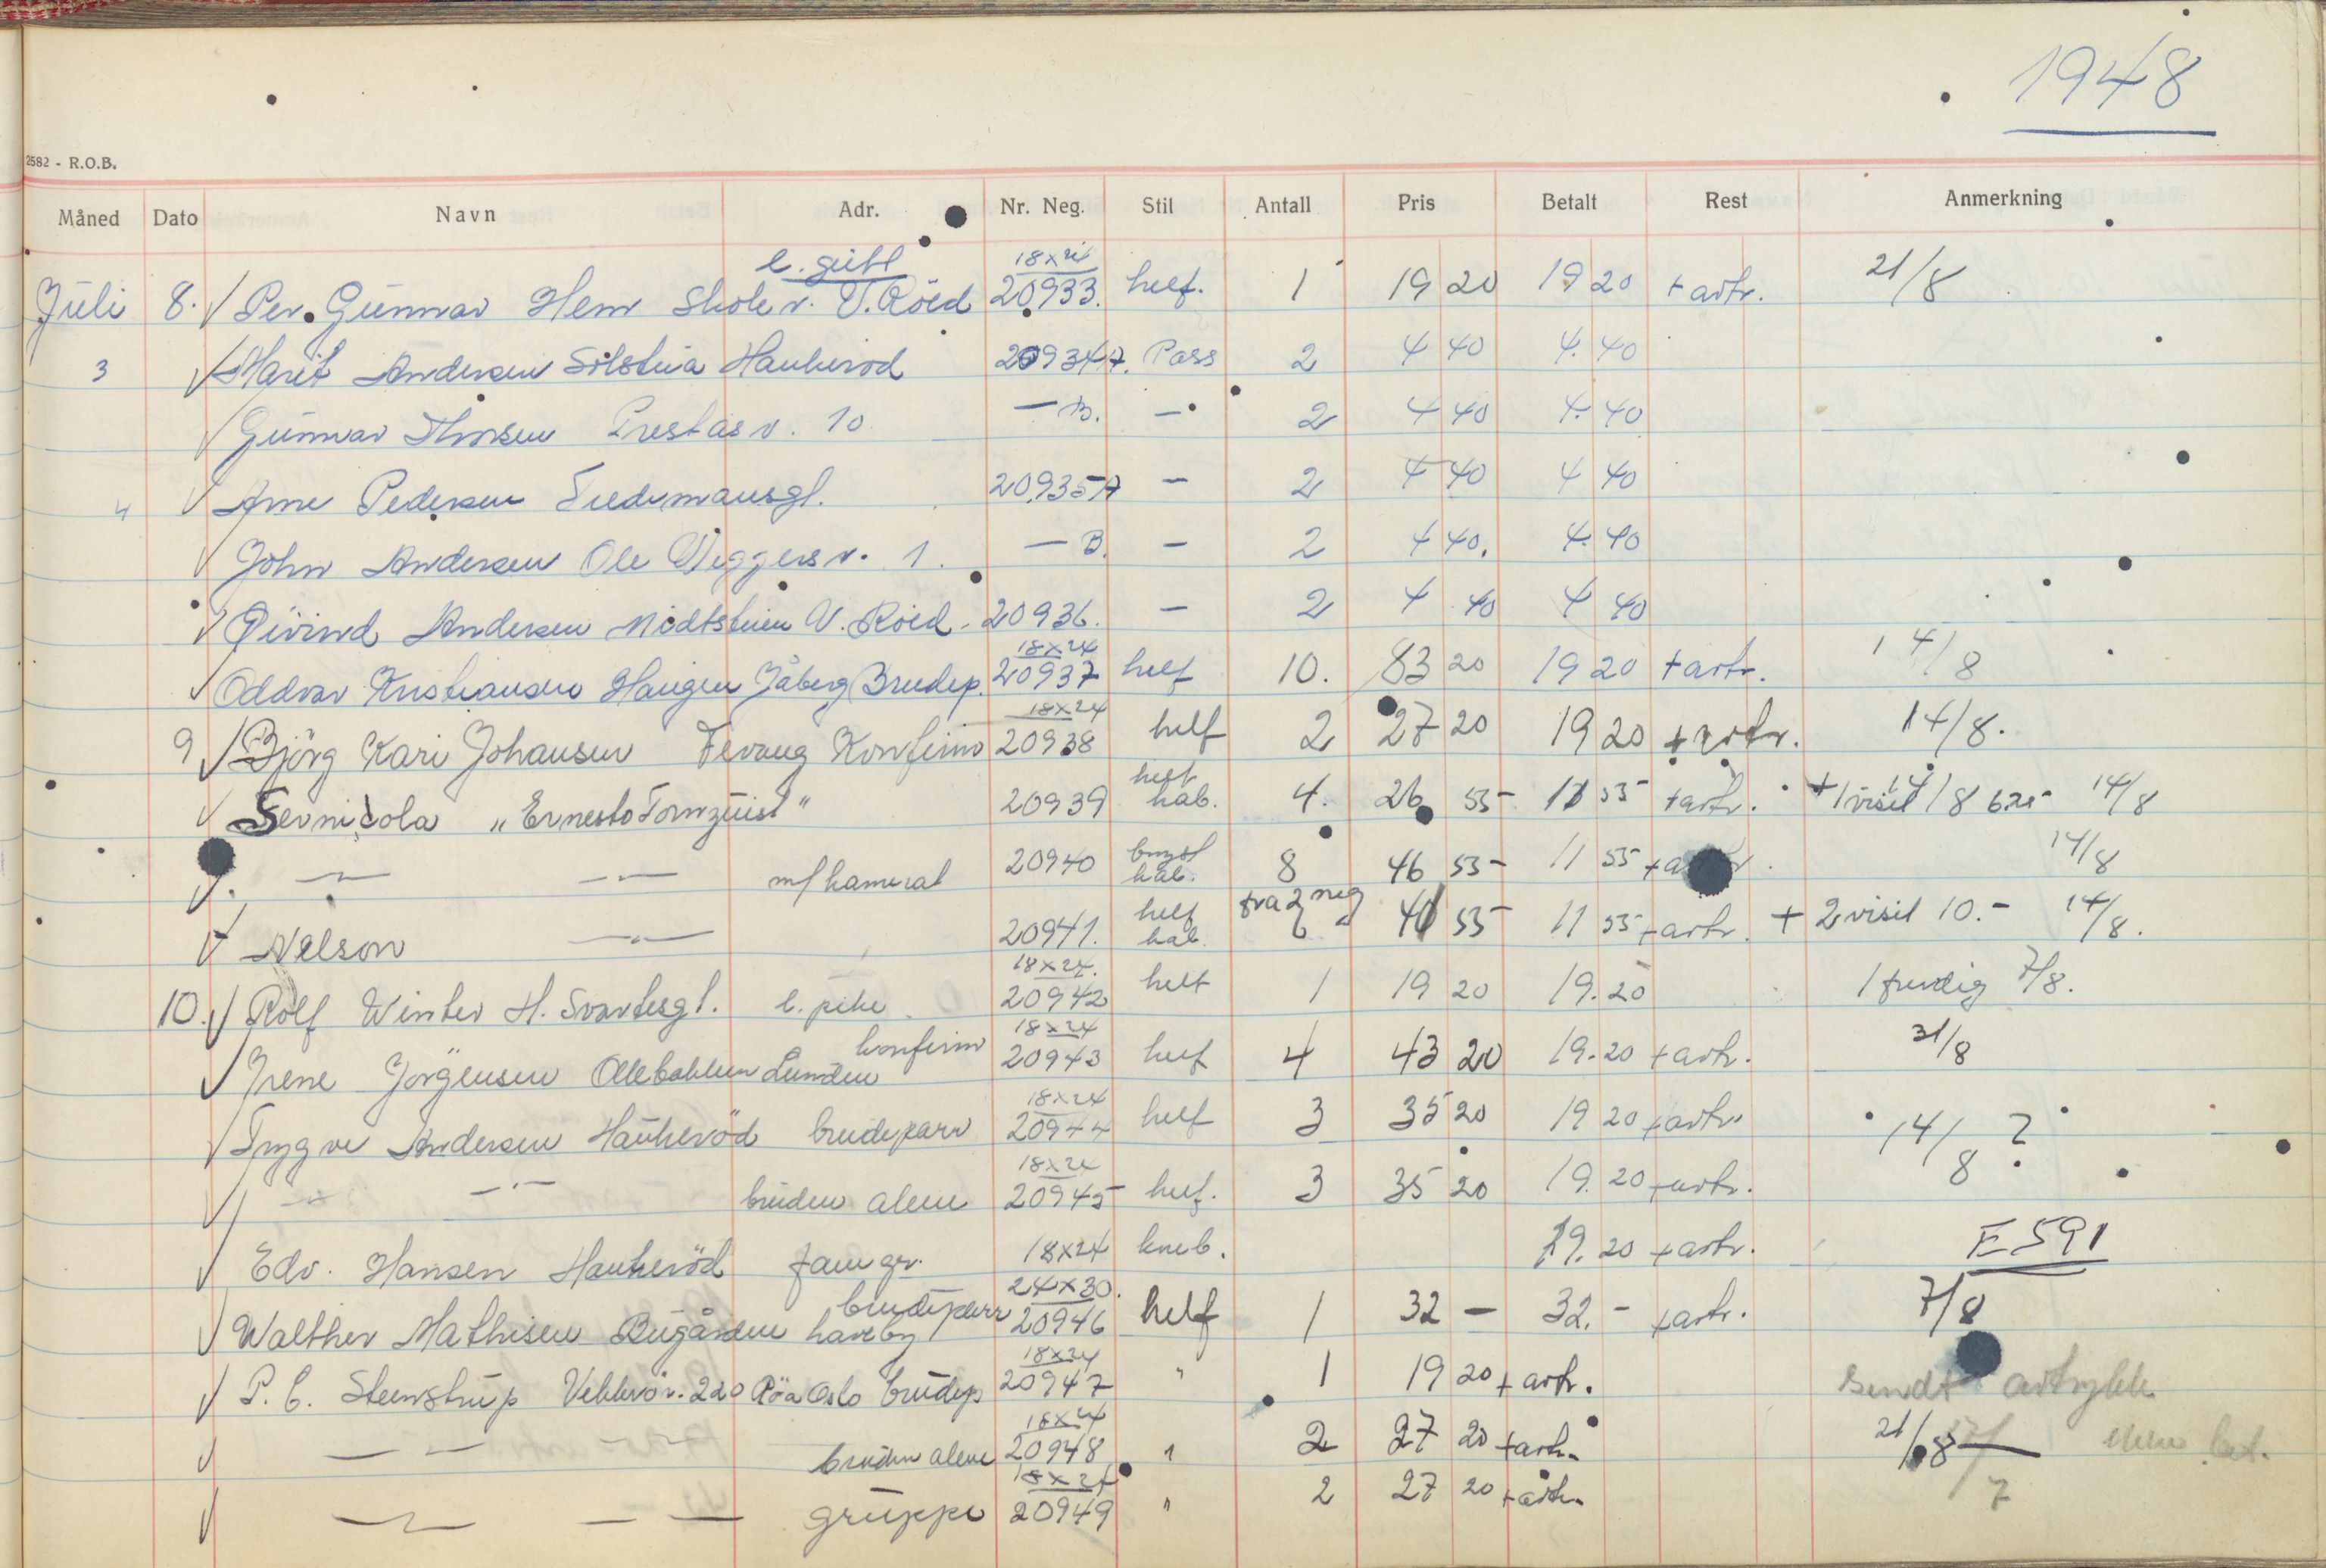 1948
2582 - R.O.B.
Måned Dato Navn Adr. Nr. Neg. Stil Antall Pris Betalt Rest Anmerkning
l. gutt 18x24
Juli 8. Per. Gunnar Hem Skolev. V. Röed 20933. helf. 1 19 20 19 20 + avtr. 21/8
3 Marit Andersen Solstua Haukeröd 20934A. Pass 2 4 40 4.40
Gunnar Thorsen Preståsv. 10 — B. — 2 4 40 4.40
4 Arne Pedersen Tredemansgl. 20935A — 2 4 40 4 40
John Andersen Ole Weggersv. 1. — B. — 2 4 40. 4.40
Öivind Andersen Midtstuen V. Röed. 20936. — 2 4 40 4 40
18x24
Oddvar Kristiansen Haugen Jåberg Brudep. 20937 helf 10. 83 20 19 20 + avtr. 14/8
18x24
9 Björg Kari Johansen Fevang Konfirm 20938 helf 2 27 20 19 20 + avtr. 14/8.
"Ernesto Tornquist" 20939 helt kab. 4. 26 55 11 55 + avtr. + 1 visit 14/8 14/8
—"— —"— m/ 20940 bryst kab. 8 46 55 11 55 + 14/8
fra 2 neg
Nelson —"— 20941. helf kab. 6 41 55 11 55 + avtr. + 2 visit 10.- 14/8.
18x24.
10. Rolf Winter H. Svartesgt. l. pike 20942 helt 1 19 20 19.20 1 ferdig 7/8.
konfirm 18x24
Irene Jörgensen Lunden 20943 helf 4 43 20 19.20 + avtr. 21/8
18x24
Trygve Andersen Haukeröd brudeparr 20944 helf 3 35 20 19 20 + avtr. 14/8 ?
18x24
—"— —"— bruden alene 20945 helf. 3 35 20 19.20 + avtr.
Edv. Hansen Haukeröd fam gr. 18x24 kneb. 19.20 + avtr. E 591
brudeparr 24x30.
Walther Mathisen Bugården 20946 helf 1 32 — 32.- + avtr. 7/8
18x24
P. C. Steenstrup Vekkeröv. 220 Röa Oslo brudep 20947 " 1 19 20 + avtr. sendt avtrykk
18x24
— — bruden alene 20948 " 2 27 20 + avtr. 21/8
18x24
—"— — — gruppe 20949 " 2 27 20 + avtr. 7